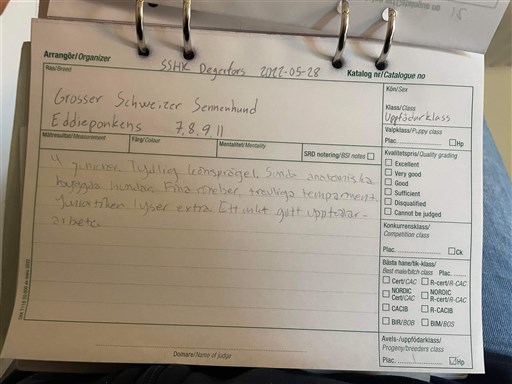 Arrangör/Organizer
SSHK Degerfors 2022-05-28
Katalog nr/Catalogue no
Ras/Breed
Grosser Schweizer Sennenhund
Eddieponkens 7,8,9,11
Kön/Sex
Klass/Class
Uppfödarklass
Valpklass/Puppy class
Plac. Hp
Måttresultat/Measurement
Färg/Colour
Mentalitet/Mentality
SRD notering/BSI notes
Kvalitetspris/Quality grading
Excellent
Very good
Good
Sufficient
Disqualified
Cannot be judged
4 juniorer. Tydlig könsprägel. Sunda anatomiska
byggda hundar. Fina rörelser, trevliga temperament.
Juniortiken lyser extra. Ett gott uppfödar-
arbete.
Konkurrensklass/
Competition class
Plac. Ck
Bästa hane/tik-klass/
Best male/bitch class Plac.
Cert/CAC R-cert/R-CAC
NORDIC Cert/CAC NORDIC R-cert/R-CAC
CACIB R-CACIB
BIR/BOB BIM/BOS
Avels-/uppfödarklass/
Progeny/breeders class
Plac. Hp
Domare/Name of judge